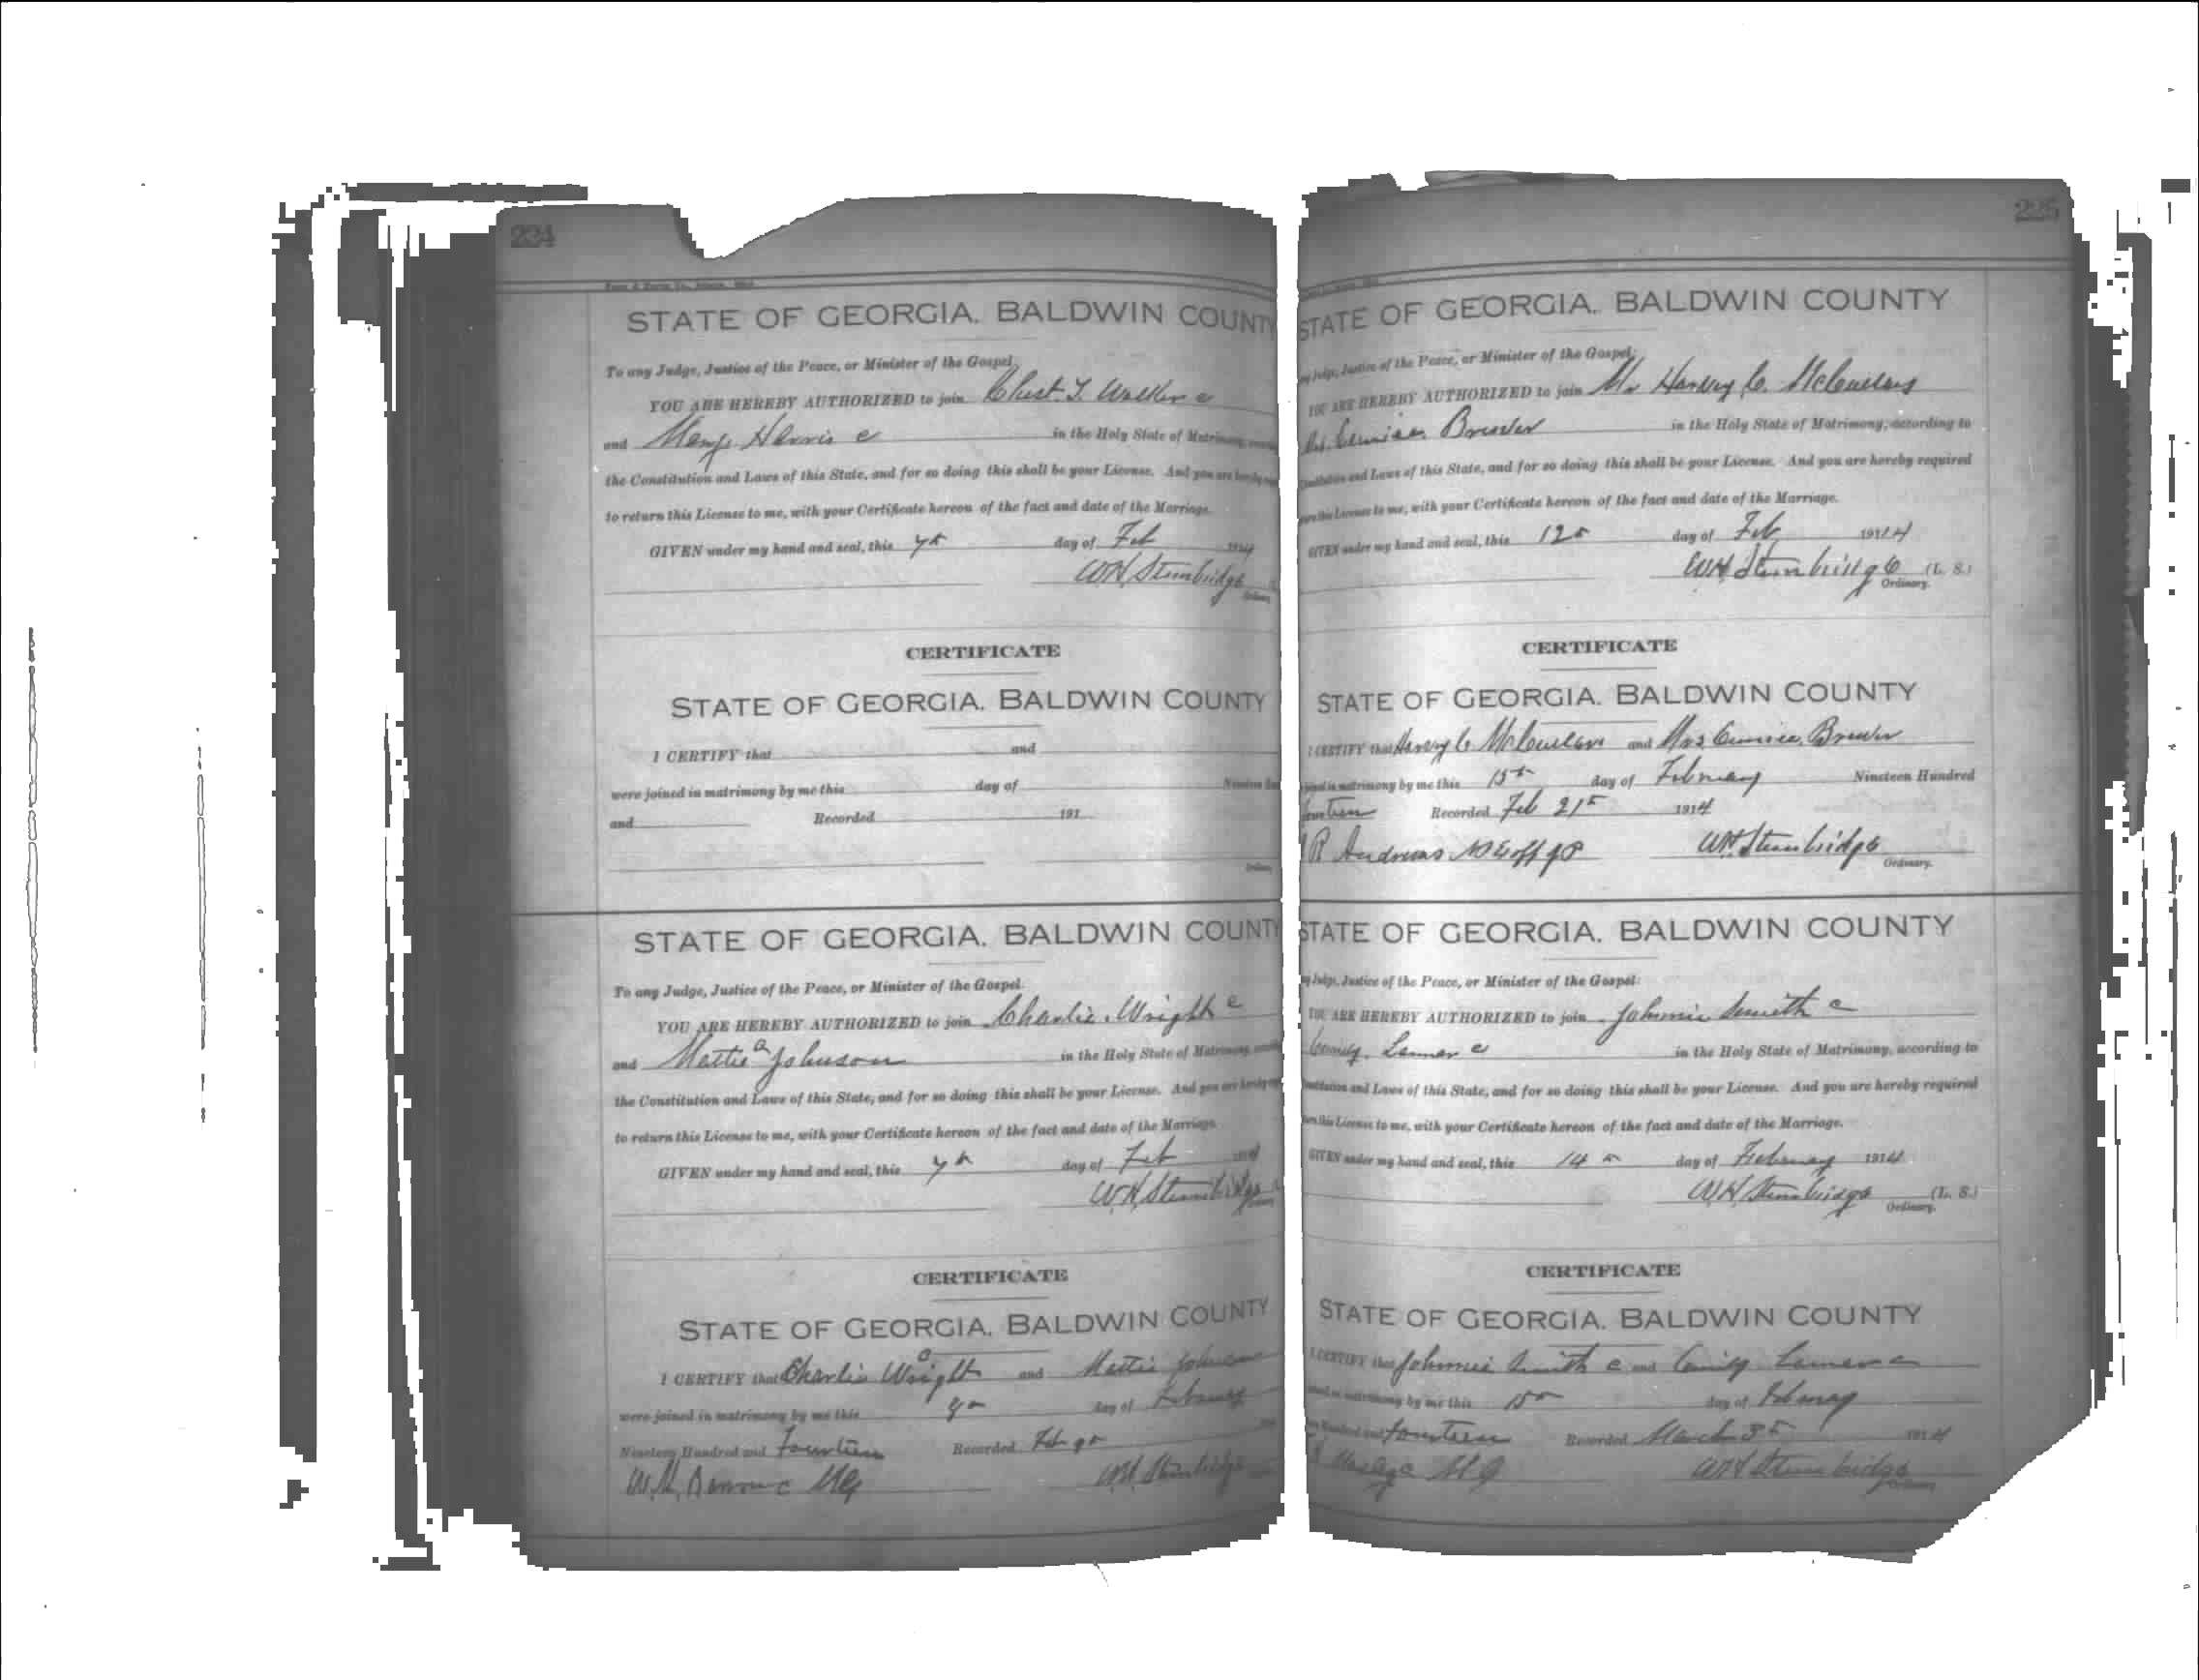 224
STATE OF GEORGIA. BALDWIN COUNTY
To any Judge, Justice of the Peace, or Minister of the Gospel:
YOU ARE HEREBY AUTHORIZED to join T. Walker c
and Harris c in the Holy State of Matrimony,
the Constitution and Laws of this State, and for so doing this shall be your License. And you are hereby
to return this License to me, with your Certificate hereon of the fact and date of the Marriage.
GIVEN under my hand and seal, this day of Feb 1914
W H Stembridge
Ordinary
CERTIFICATE
STATE OF GEORGIA. BALDWIN COUNTY
I CERTIFY that and
were joined in matrimony by me this day of Nineteen
and Recorded 191
STATE OF GEORGIA. BALDWIN COUNT
To any Judge, Justice of the Peace, or Minister of the Gospel.
YOU ARE HEREBY AUTHORIZED to join Charlie Wright c
and Mattie Johnson in the Holy State of Matrimony,
the Constitution and Laws of this State, and for so doing this shall be your License. And you are hereby
to return this License to me, with your Certificate hereon of the fact and date of the Marriage.
GIVEN under my hand and seal, this day of Feb
W H Stembridge
CERTIFICATE
STATE OF GEORGIA. BALDWIN COUNTY
I CERTIFY that Charlie Wright and Mattie Johnson
were joined in matrimony by me this day of February
Nineteen Hundred and Fourteen Recorded Feb
W H Stembridge
225
STATE OF GEORGIA. BALDWIN COUNTY
Judge, Justice of the Peace, or Minister of the Gospel:
YOU ARE HEREBY AUTHORIZED to join Mr Harvey C.
Brewer in the Holy State of Matrimony, according to
Constitution and Laws of this State, and for so doing this shall be your License. And you are hereby required
this License to me, with your Certificate hereon of the fact and date of the Marriage.
GIVEN under my hand and seal, this 12 day of Feb 1914
W H Stembridge (L. S.)
Ordinary.
CERTIFICATE
STATE OF GEORGIA. BALDWIN COUNTY
I CERTIFY that Harvey C and Mrs Eunice Brewer
in matrimony by me this 15th day of February Nineteen Hundred
Recorded Feb 21 1914
R Andrews W H Stembridge
Ordinary.
STATE OF GEORGIA. BALDWIN COUNTY
Judge, Justice of the Peace, or Minister of the Gospel:
YOU ARE HEREBY AUTHORIZED to join Johnnie Smith c
Lamar c in the Holy State of Matrimony, according to
Constitution and Laws of this State, and for so doing this shall be your License. And you are hereby required
this License to me, with your Certificate hereon of the fact and date of the Marriage.
GIVEN under my hand and seal, this 14 day of February 1914
W H Stembridge (L. S.)
Ordinary.
CERTIFICATE
STATE OF GEORGIA. BALDWIN COUNTY
I CERTIFY that Johnnie Smith c and Lamar c
in matrimony by me this 15 day of February
Hundred and fourteen Recorded March 1914
W H Stembridge